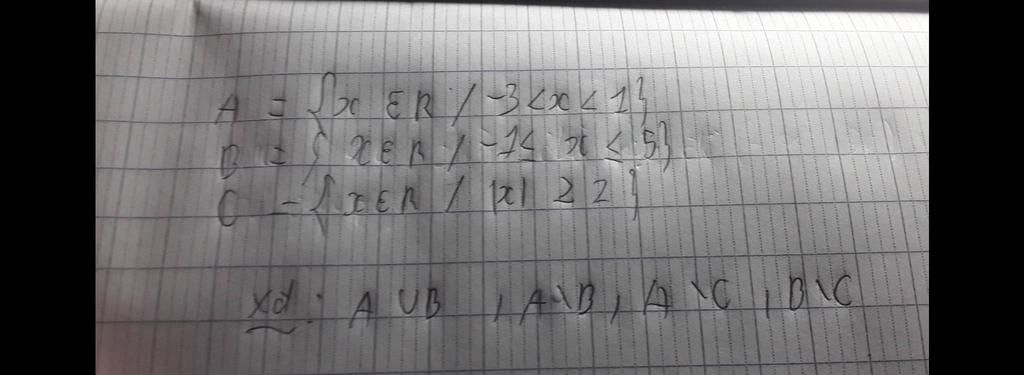 A = {x ∈ R / -3 < x < 1}
B = { x ∈ R / -1 ≤ x < 5}
C = {x ∈ R / |x| ≥ 2 }
xđ : A ∪ B , A \ B , A \ C , B \ C